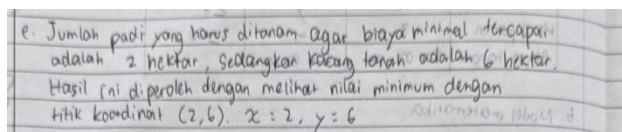 e. Jumlah padi yang harus ditanam agar biaya minimal tercapai
adalah 2 hektar, sedangkan kacang tanah adalah 6 hektar.
Hasil ini diperoleh dengan melihat nilai minimum dengan
titik koordinat (2,6). x = 2, y = 6